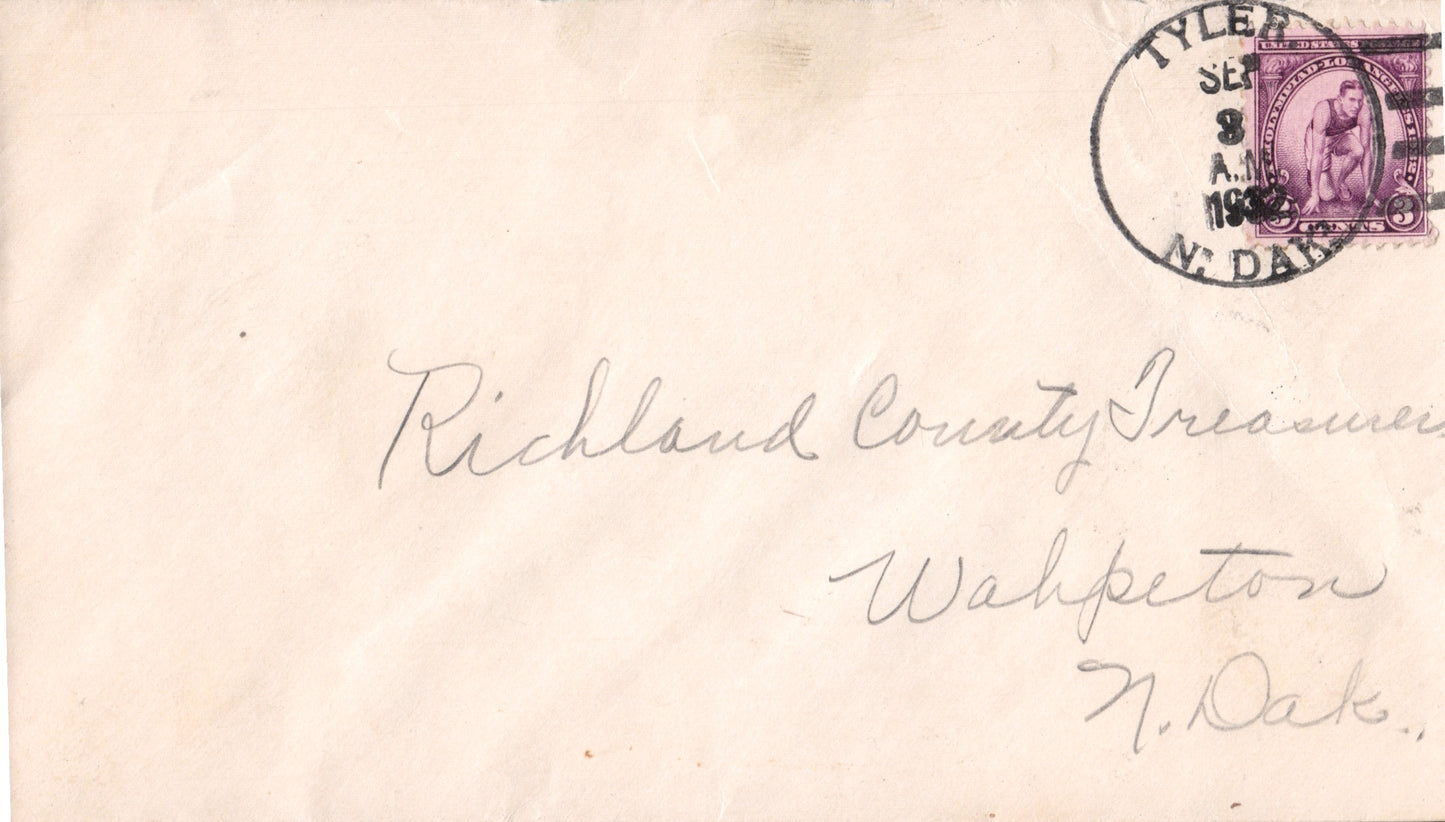 TYLER
SEP
3
A.M
1932
N. DAK.
UNITED STATES
OLYMPIAD LOS ANGELES 1932
3 3
CENTS
Richland County Treasurer
Wahpeton
N. Dak.